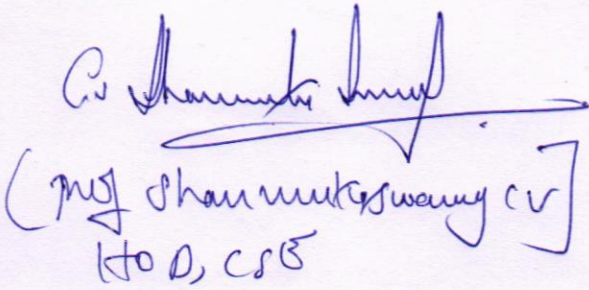 Cv Shanmuka Swamy
(Prof Shanmukaswamy CV]
HOD, CSE